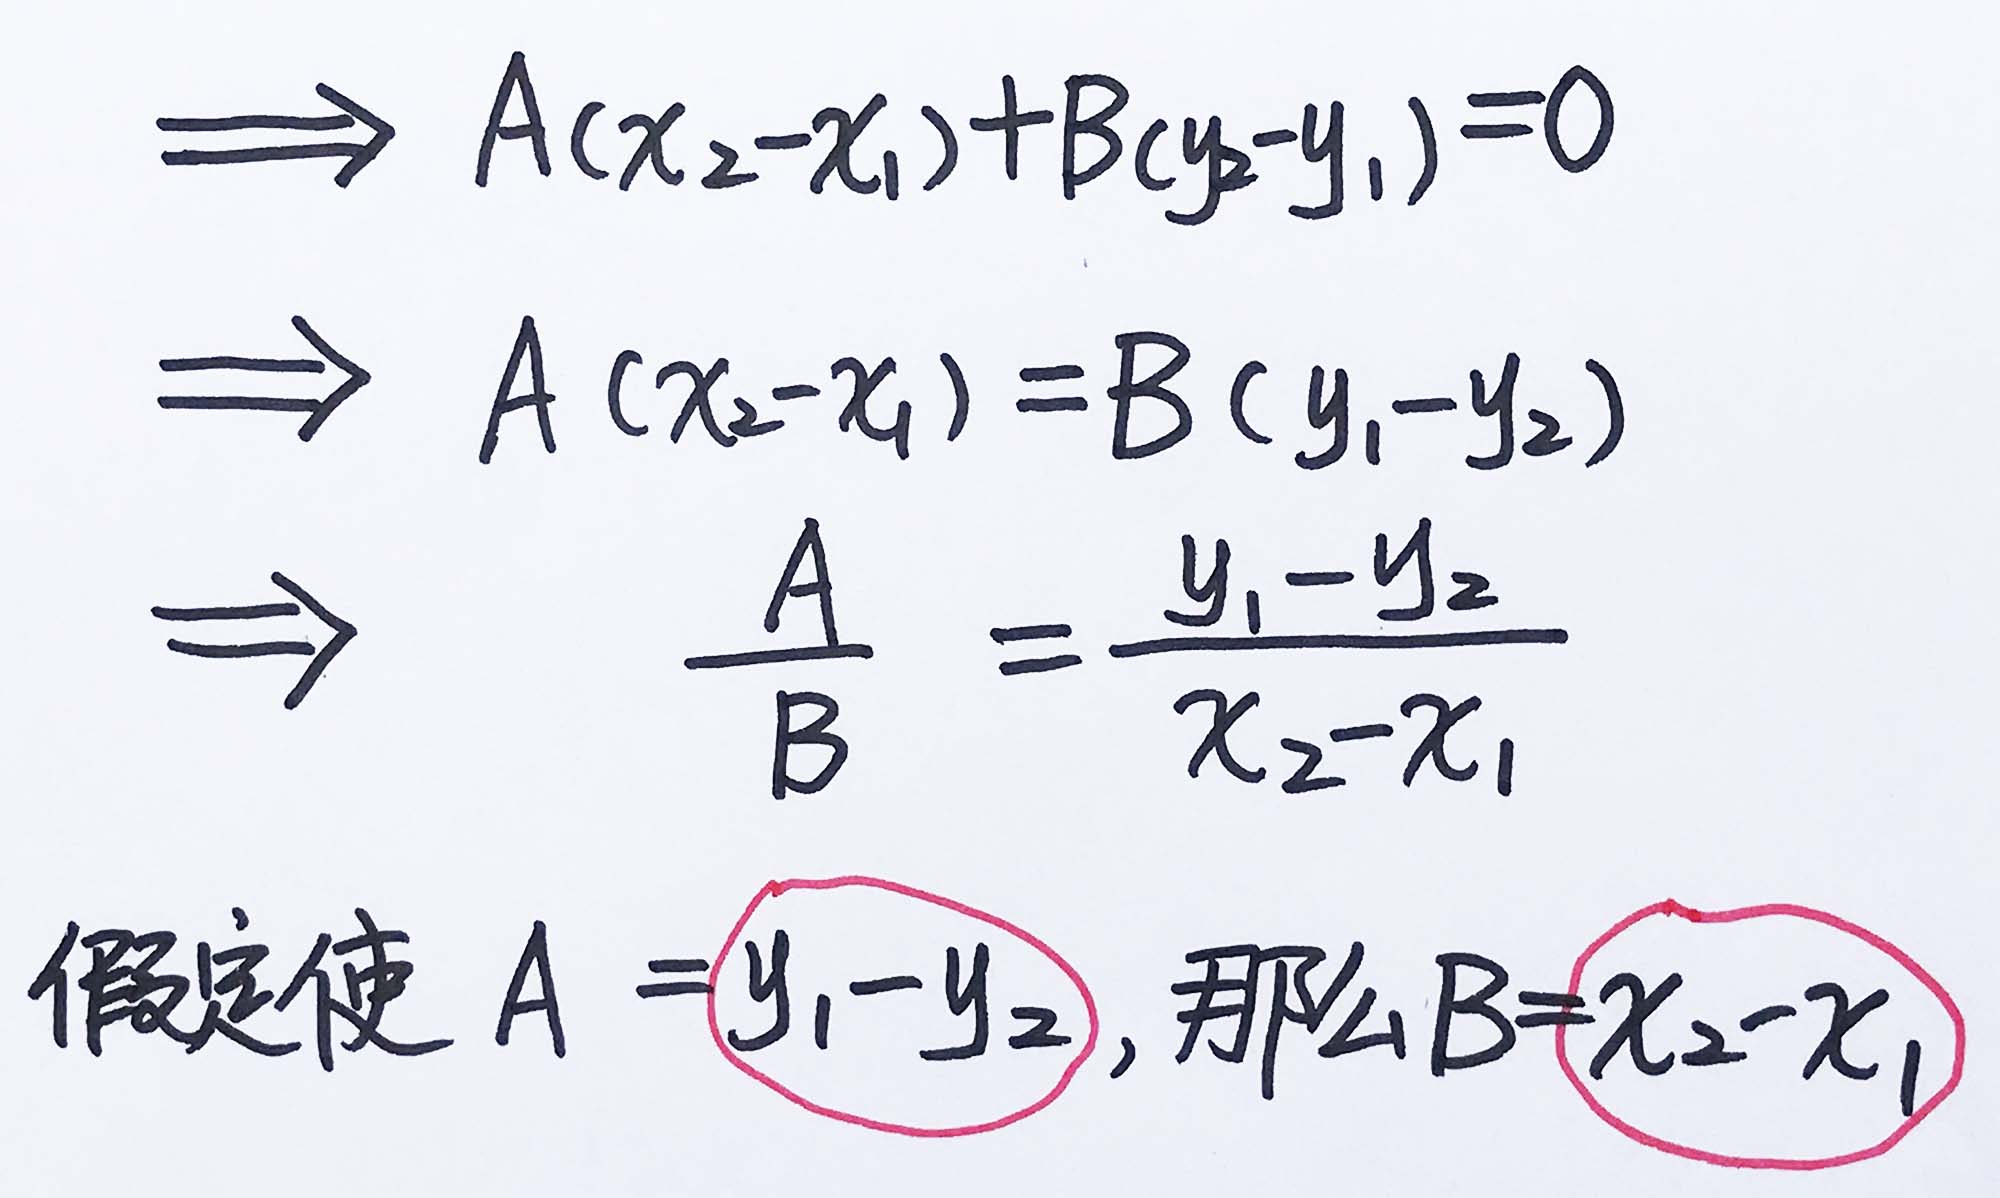 ⟹ A(x₂-x₁)+B(y₂-y₁)=0
⟹ A(x₂-x₁)=B(y₁-y₂)
⟹ A/B = (y₁-y₂)/(x₂-x₁)
假定使 A =y₁-y₂, 那么B=x₂-x₁